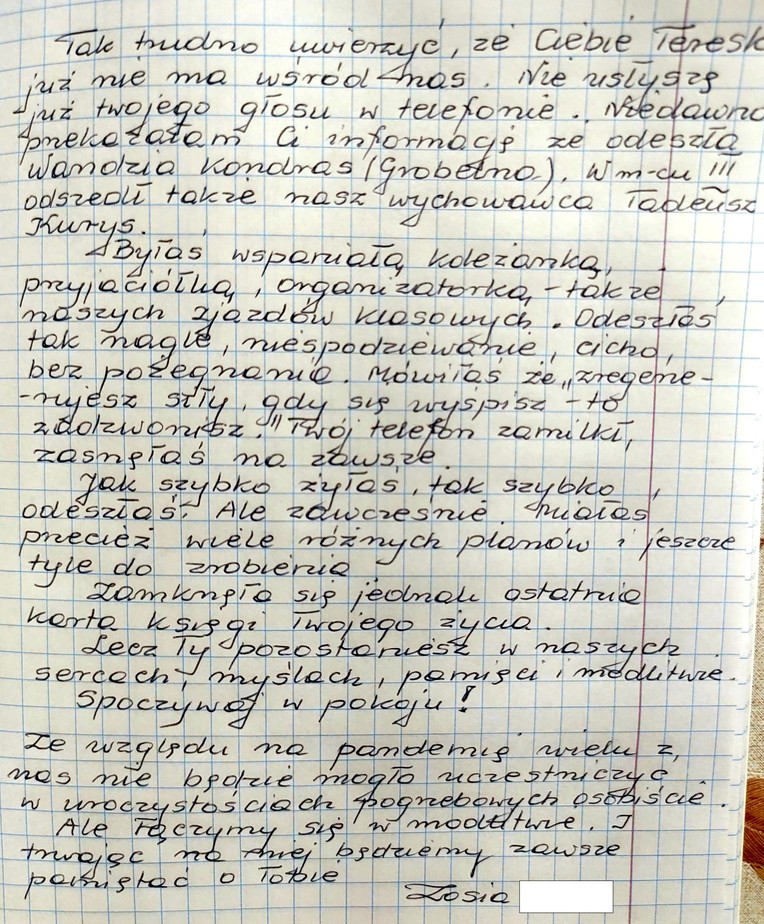 Tak trudno uwierzyć, że Ciebie Teresk
już nie ma wśród nas. Nie usłyszę
już twojego głosu w telefonie. Niedawno
przekazałam Ci informację że odeszła
Wandzia Kondras (Grobelna). W m-cu III
odszedł także nasz wychowawca Tadeusz
Kurys.
Byłaś wspaniałą koleżanką,
przyjaciółką, organizatorką - także
naszych zjazdów klasowych. Odeszłaś
tak nagle, niespodziewanie, cicho,
bez pożegnania. Mówiłaś że „zregene-
-rujesz siły, gdy się wyspisz - to
zadzwonisz." Twój telefon zamilkł,
zasnęłaś na zawsze.
Jak szybko żyłaś, tak szybko
odeszłaś. Ale zawcześnie. Miałaś
przecież wiele różnych planów i jeszcze
tyle do zrobienia
Zamknęła się jednak ostatnia
karta księgi Twojego życia.
Lecz Ty pozostaniesz w naszych
sercach, myślach, pamięci i modlitwie.
Spoczywaj w pokoju!
Ze względu na pandemię wielu z
nas nie będzie mogło uczestniczyć
w uroczystościach pogrzebowych osobiście.
Ale łączymy się w modlitwie. I
trwając na niej będziemy zawsze
pamiętać o Tobie
Zosia